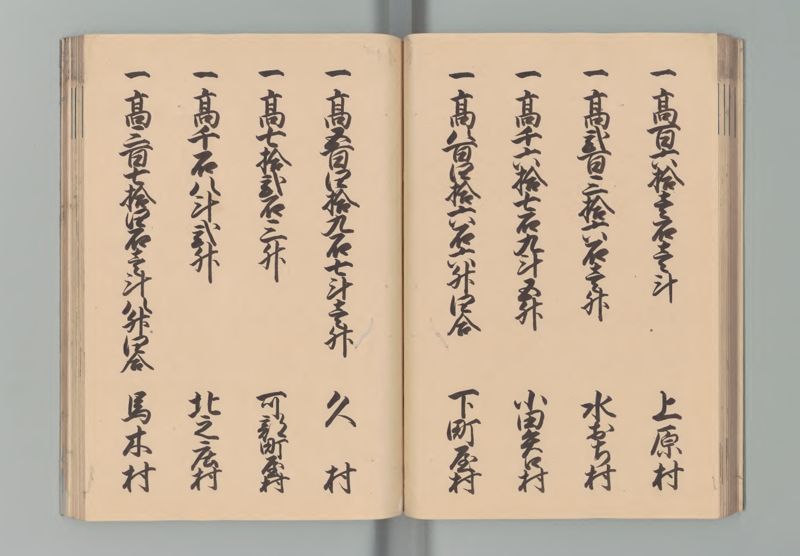 一高百六拾壱石壱斗 上原村
一高弐百三拾六石壱升 水おち村
一高千六拾七石九斗五升 小田矢口村
一高八百四拾六石六升四合 下町屋村
一高五百四拾九石七斗壱升 久村
一高七拾弐石三升 町屋村
一高千石八斗弐升 北之庄村
一高三百七拾四石壱斗八升四合 馬木村